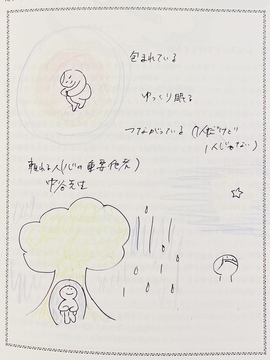 包まれている
ゆっくり眠る
つながっている（1人だけど
1人じゃない）
頼れる人（心の重要他者）
中谷先生